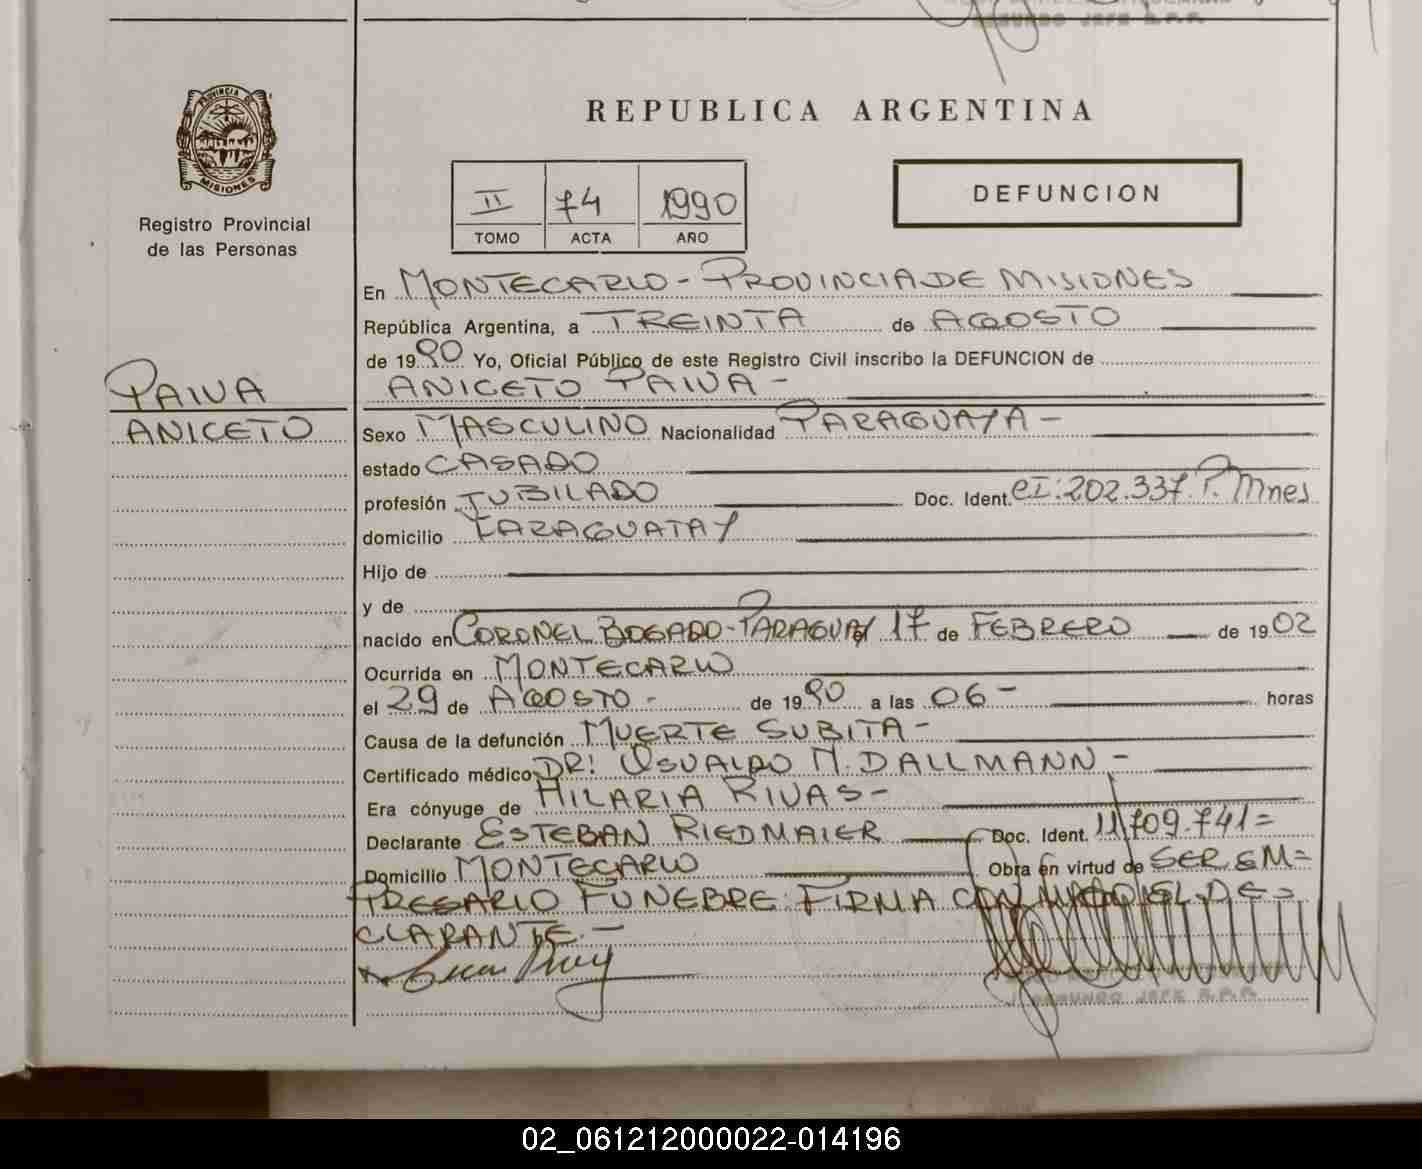 PROVINCIA DE
MISIONES
Registro Provincial
de las Personas
REPUBLICA ARGENTINA
II 74 1990
TOMO ACTA AÑO
DEFUNCION
En MONTECARLO - PROVINCIA DE MISIONES
República Argentina, a TREINTA de AGOSTO
de 1990 Yo, Oficial Público de este Registro Civil inscribo la DEFUNCION de
PAIVA ANICETO PAIVA -
ANICETO Sexo MASCULINO Nacionalidad PARAGUAYA -
estado CASADO
profesión JUBILADO Doc. Ident. CI: 202.337. P. Mnes
domicilio TARAGUATAY
Hijo de
y de
nacido en CORONEL BOGADO - PARAGUAY 17 de FEBRERO de 1902
Ocurrida en MONTECARLO
el 29 de AGOSTO - de 1990 a las 06 - horas
Causa de la defunción MUERTE SUBITA -
Certificado médico DR: OSVALDO N. DALLMANN -
Era cónyuge de HILARIA RIVAS -
Declarante ESTEBAN RIEDMAIER Doc. Ident. 11.709.741=
Domicilio MONTECARLO Obra en virtud de SER EM=
PRESARIO FUNEBRE: FIRMA CONMIGO EL DE=
CLARANTE. -
SEGUNDO JEFE R.P.P.
02_061212000022-014196